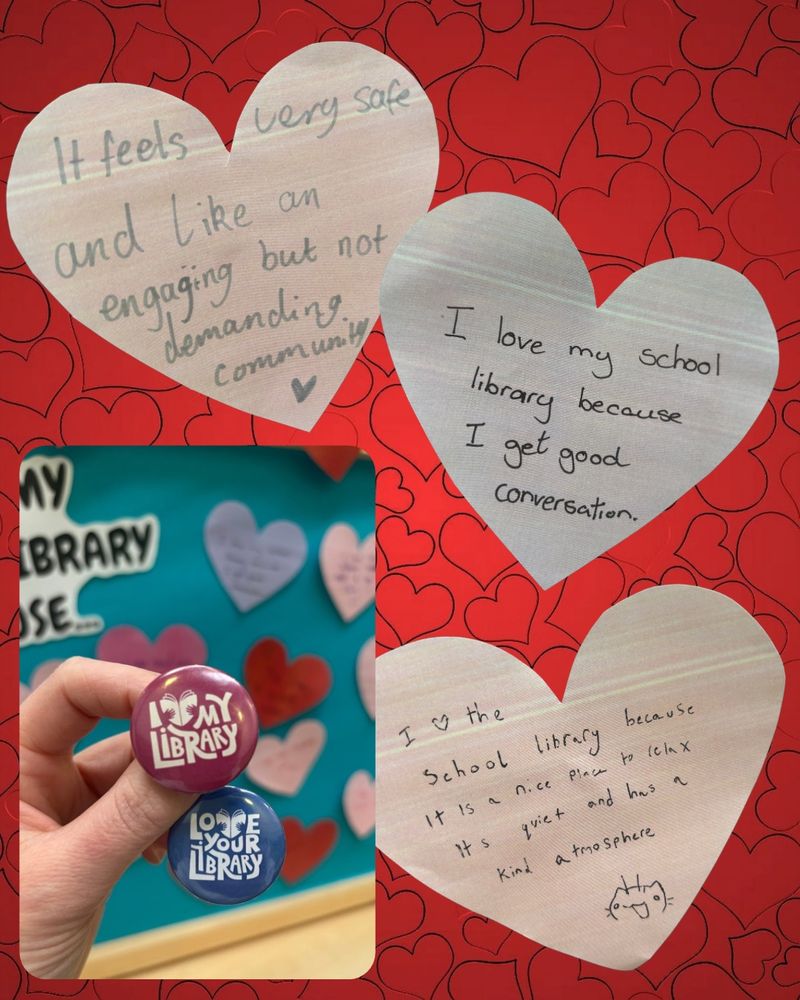 It feels very safe
and like an
engaging but not
demanding
community
I love my school
library because
I get good
conversation.
I ♡ the
School library because
It Is a nice place to relax
It s quiet and has a
kind atmosphere
MY
IBRARY
USE...
I MY
LIBRARY
LOVE
YOUR
LIBRARY